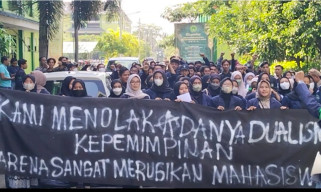 KAMI MENOLAK ADANYA DUALISM
KEPEMIMPINAN
ARENA SANGAT MERUGIKAN MAHASISW